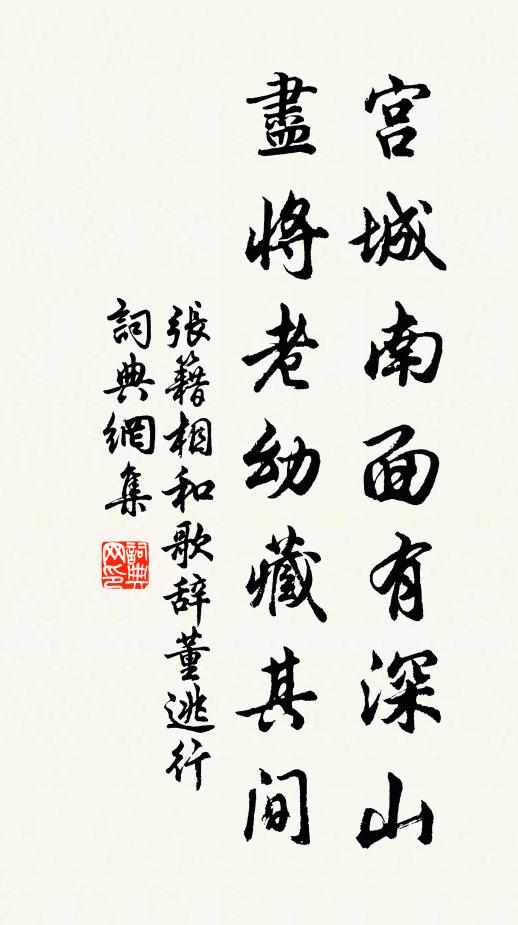 宫城南面有深山
盡將老幼藏其间
張籍相和歌辞董逃行
詞典網集
詞典网印